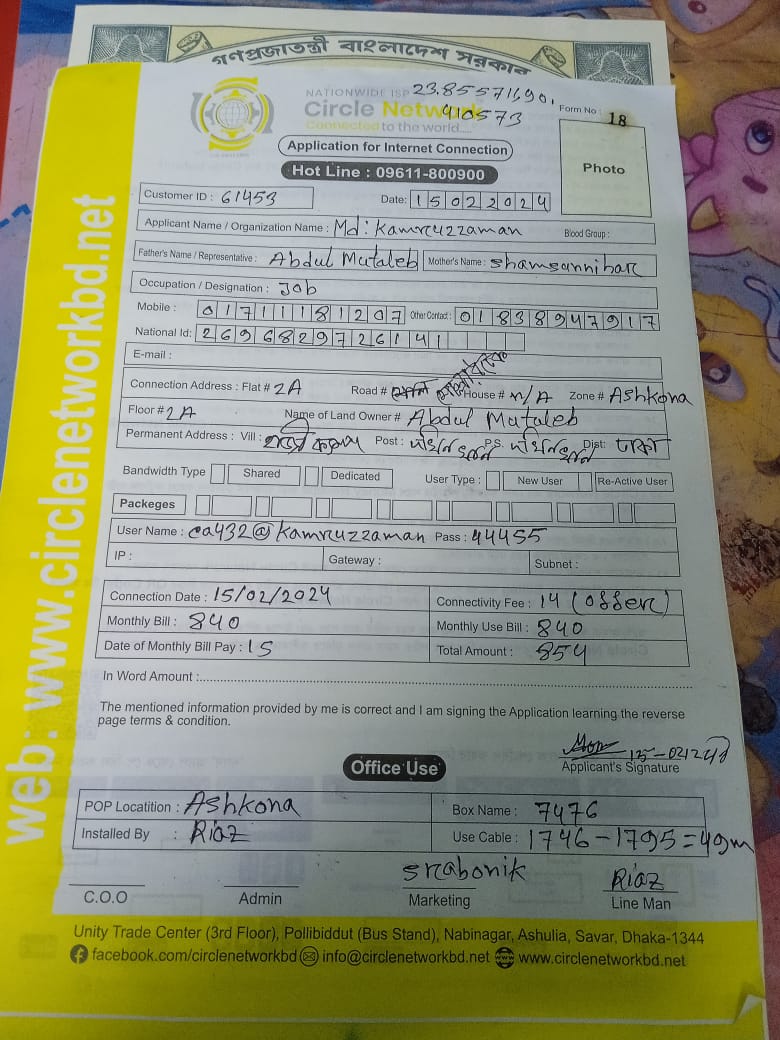 গণপ্রজাতন্ত্রী বাংলাদেশ সরকার
NATIONWIDE ISP 23.8557190,
Circle Network 410573
Connected to the world....
Form No : 18
Application for Internet Connection
Hot Line : 09611-800900
Photo
Customer ID : 61453 Date: 15022024
Applicant Name / Organization Name : Md: Kamruzzaman Blood Group :
Father's Name / Representative : Abdul Mutaleb Mother's Name : Shamsunnihar
Occupation / Designation : Job
Mobile : 01711181207 Other Contact : 01838947917
National Id: 2696829726141
E-mail :
Connection Address : Flat # 2A Road # House # N/A Zone # Ashkona
Floor # 2A Name of Land Owner # Abdul Mutaleb
Permanent Address : Vill : Post : P.S: Dist: ঢাকা
Bandwidth Type Shared Dedicated User Type : New User Re-Active User
Packeges
User Name : ca432@kamruzzaman Pass : 44455
IP : Gateway : Subnet :
Connection Date : 15/02/2024 Connectivity Fee : 14 (offer)
Monthly Bill : 840 Monthly Use Bill : 840
Date of Monthly Bill Pay : 15 Total Amount : 854
In Word Amount :
The mentioned information provided by me is correct and I am signing the Application learning the reverse
page terms & condition.
Applicant's Signature
Office Use
POP Locatition : Ashkona Box Name : 7476
Installed By : Riaz Use Cable : 1746-1795=49m
srabonik Riaz
C.O.O Admin Marketing Line Man
Unity Trade Center (3rd Floor), Pollibiddut (Bus Stand), Nabinagar, Ashulia, Savar, Dhaka-1344
facebook.com/circlenetworkbd info@circlenetworkbd.net www.circlenetworkbd.net
web: www.circlenetworkbd.net